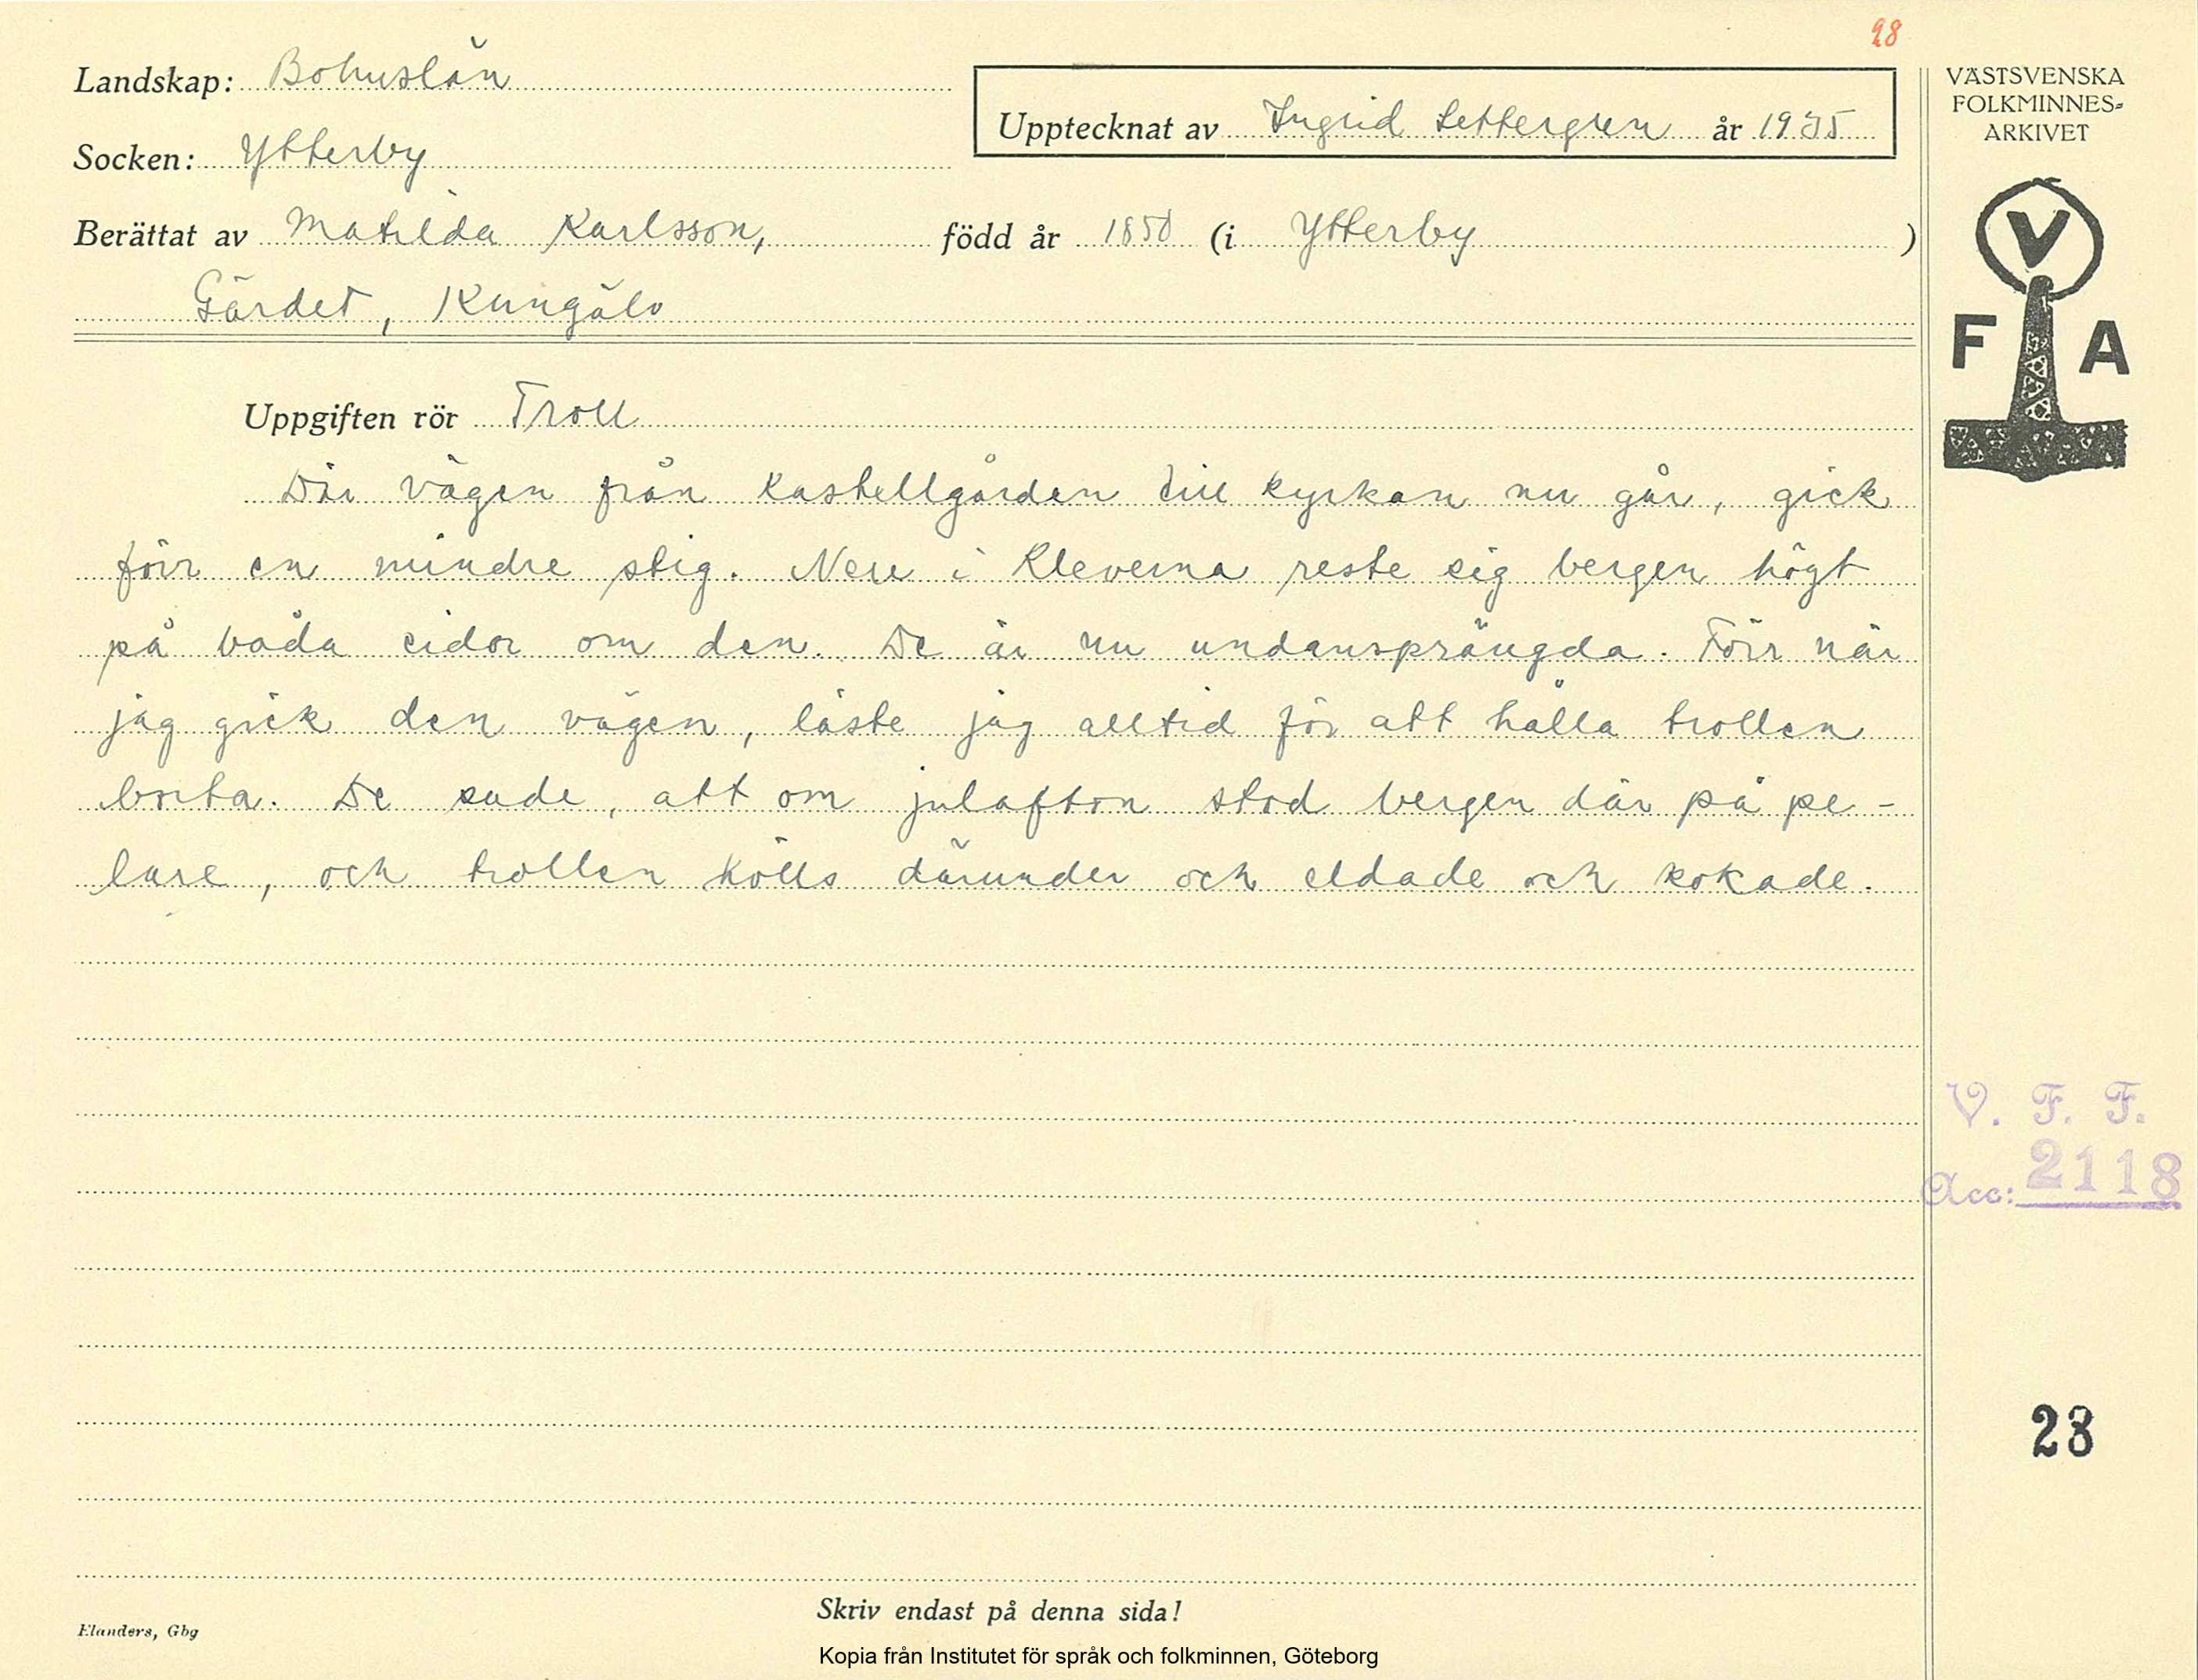 28
Landskap: Bohuslän
Socken: Ytterby
Upptecknat av Ingrid Settergren år 1935
Berättat av Matilda Karlsson, född år 1850 (i Ytterby )
Gärdet, Kungälv
Uppgiften rör Troll
Där vägen från Kastellgården till kyrkan nu går, gick
förr en mindre stig. Nere i Kleverna reste sig bergen högt
på båda sidor om den. De är nu undansprängda. Förr när
jag gick den vägen, läste jag alltid för att hålla trollen
borta. De sade, att om julafton stod bergen där på pe-
lare, och trollen hölls därunder och eldade och kokade.
Skriv endast på denna sida!
Elanders, Gbg
Kopia från Institutet för språk och folkminnen, Göteborg
VÄSTSVENSKA
FOLKMINNES-
ARKIVET
V
F A
V. F. F.
Acc: 2118
28